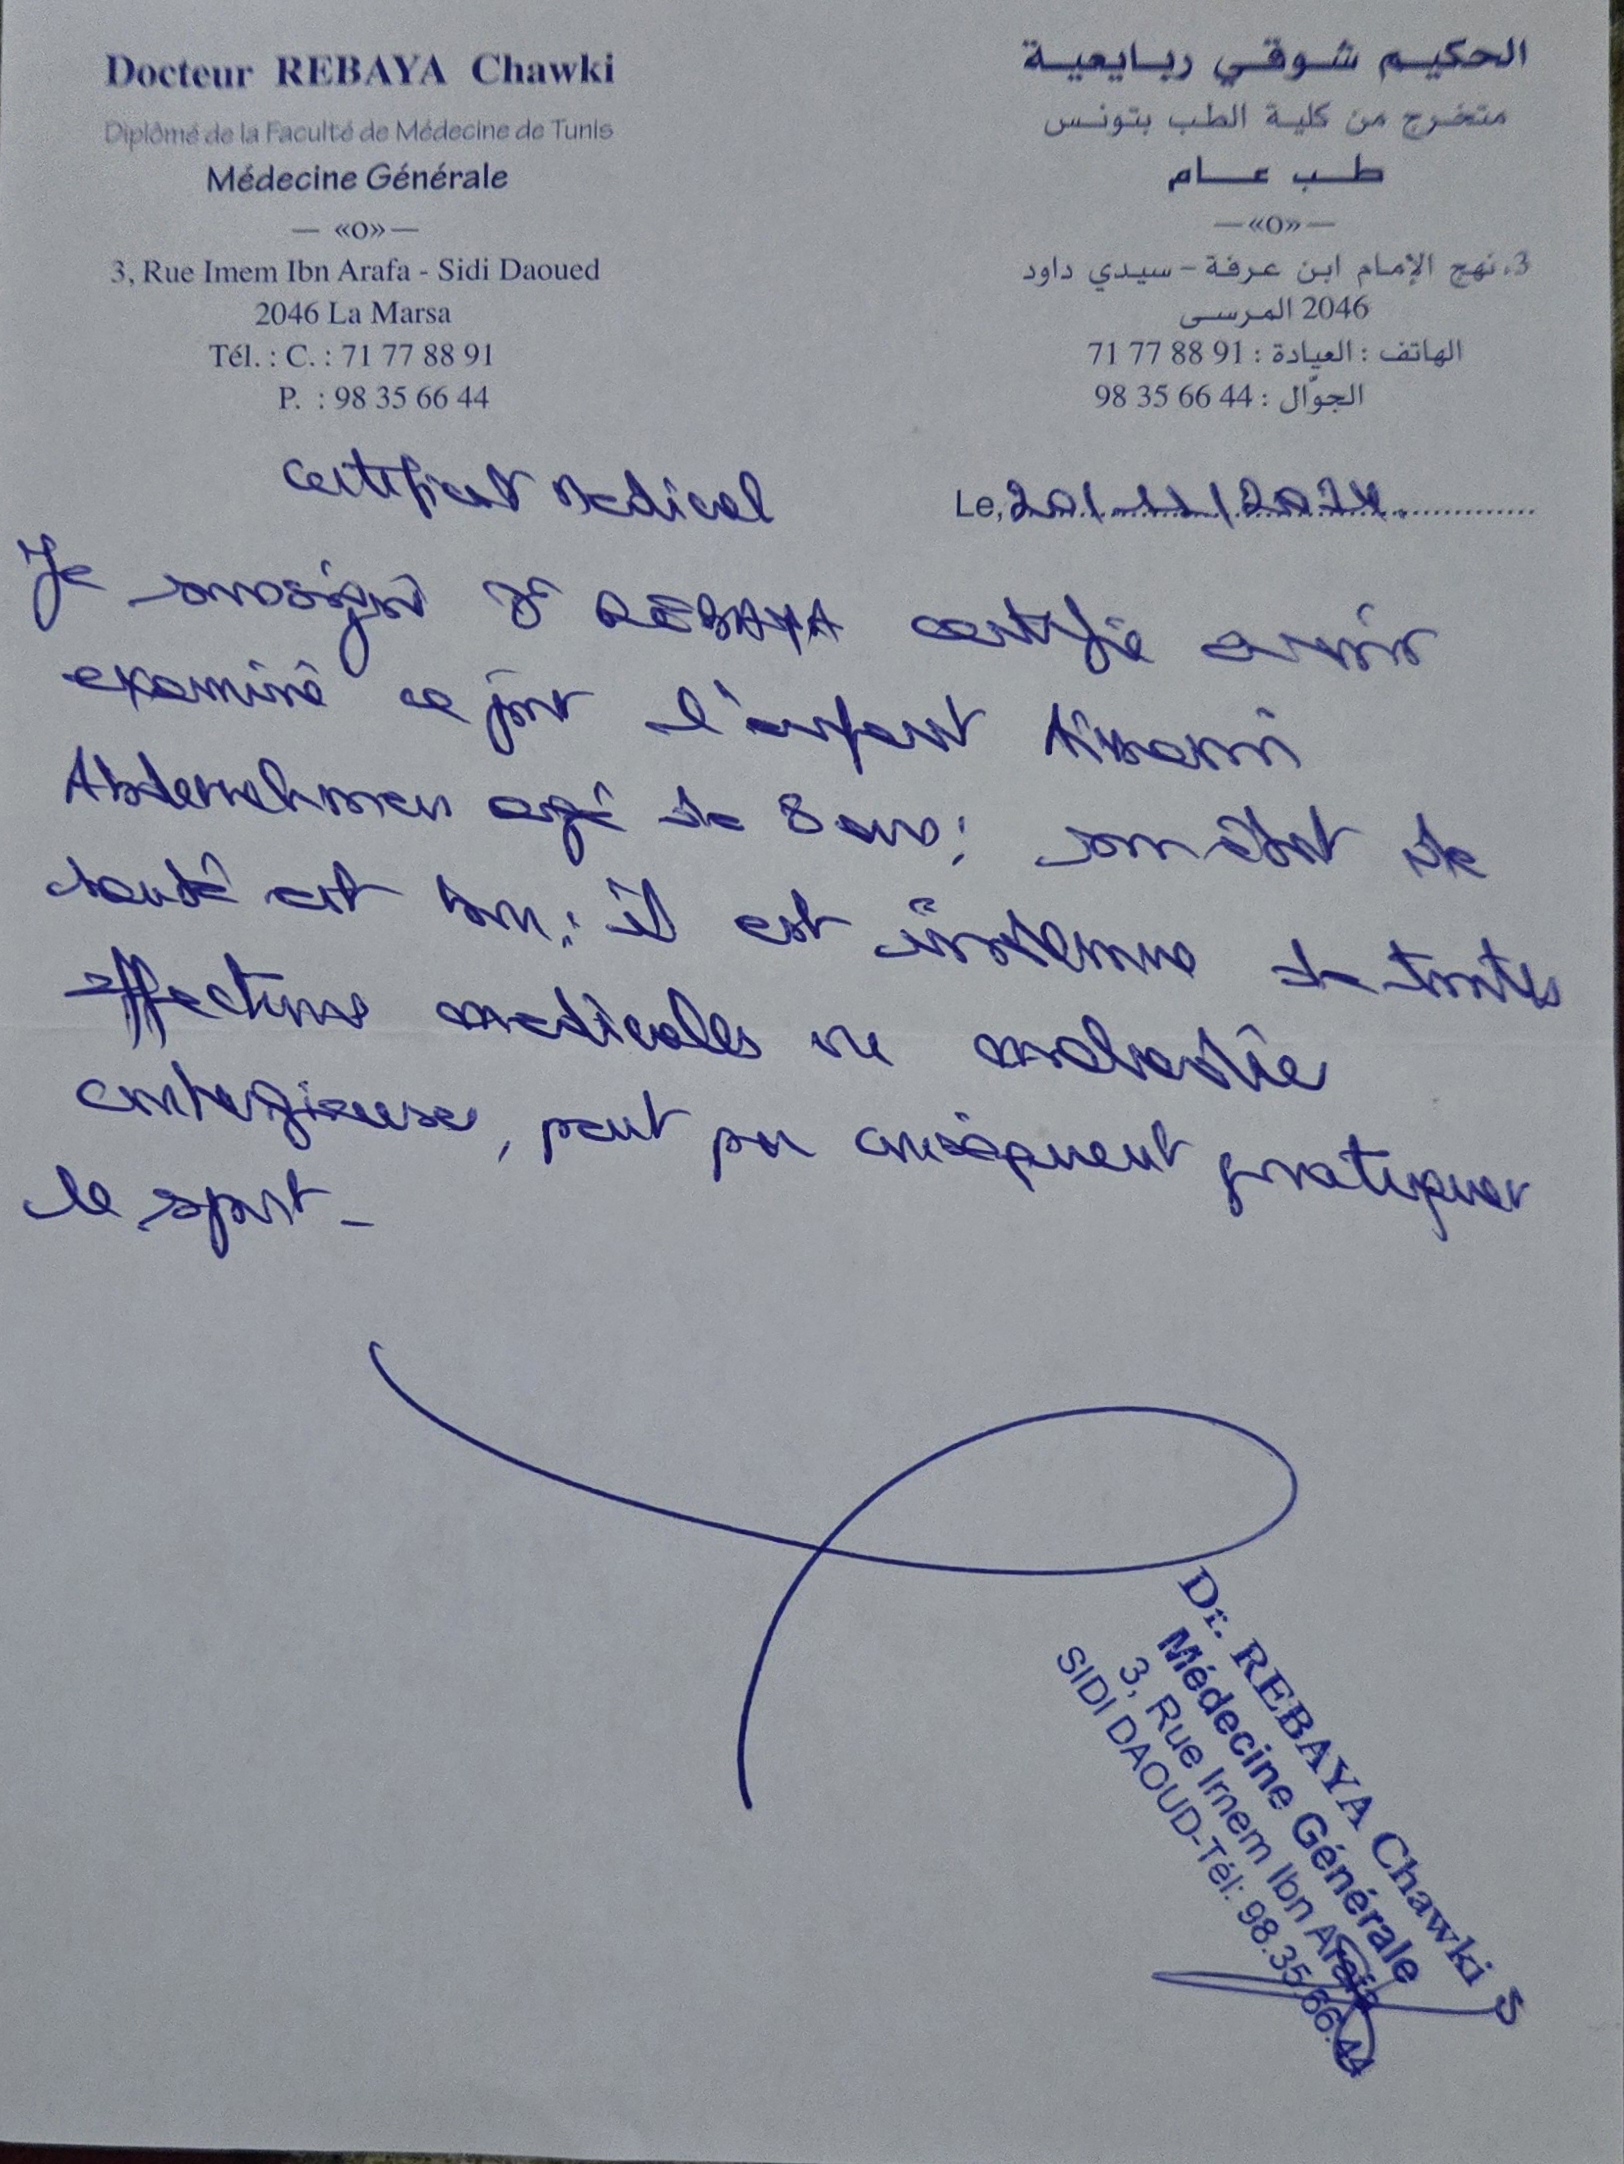 Docteur REBAYA Chawki
Diplômé de la Faculté de Médecine de Tunis
Médecine Générale
— «o» —
3, Rue Imem Ibn Arafa - Sidi Daoued
2046 La Marsa
Tél. : C. : 71 77 88 91
P. : 98 35 66 44
الحكيم شوقي ربايعية
متخرج من كلية الطب بتونس
طب عام
— «o» —
3، نهج الإمام ابن عرفة - سيدي داود
2046 المرسى
الهاتف : العيادة : 71 77 88 91
الجوّال : 98 35 66 44
Certificat Medical
Le, 20/11/2024
Je soussigné Dr REBAYA certifie avoir
examiné ce jour l'enfant
Abderrehmen agé de 8 ans; son état de
santé est bon; il est indemne de toutes
affections medicales ou maladie
contagieuse, peut par conséquent pratiquer
le sport -
Dr. REBAYA Chawki
Médecine Générale
3, Rue Imem Ibn Arafa
SIDI DAOUD-Tél: 98.35.66.44